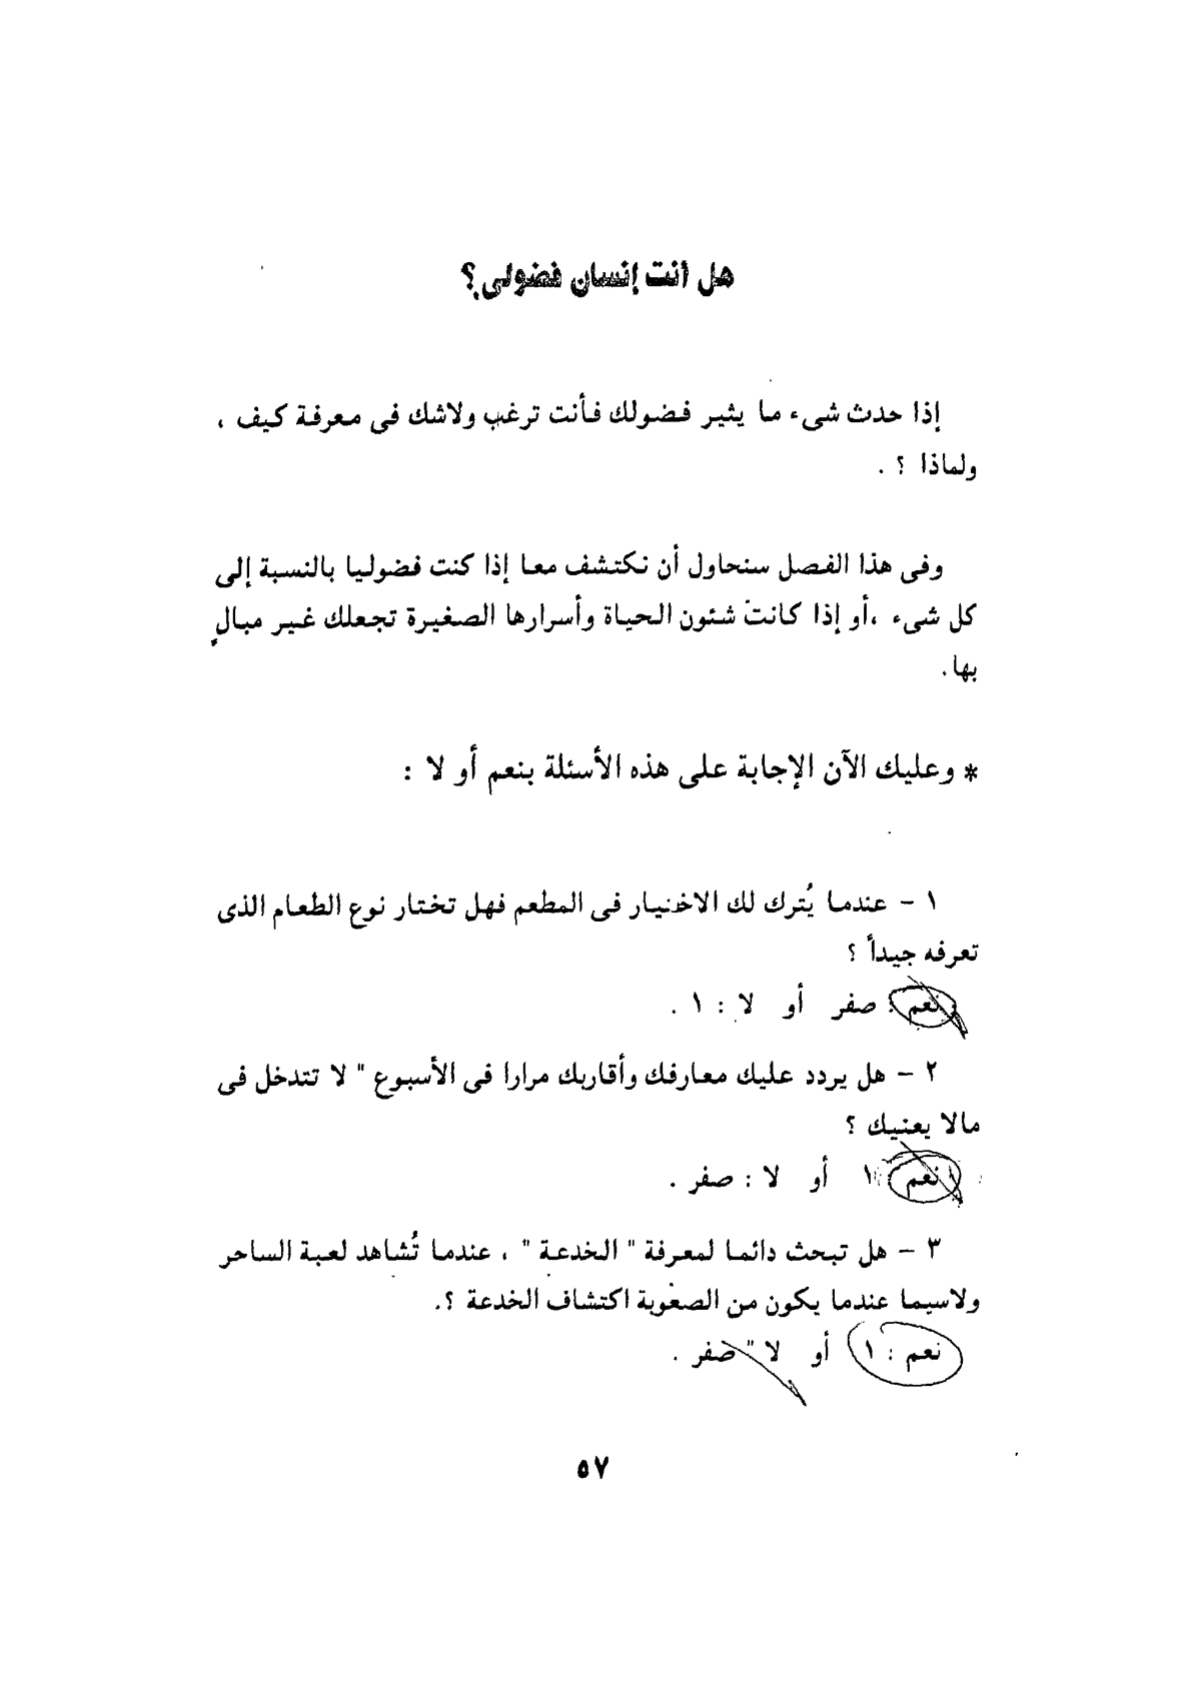 هل أنت إنسان فضولى؟
إذا حدث شىء ما يثير فضولك فأنت ترغب ولاشك فى معرفة كيف ،
ولماذا ؟ .
وفى هذا الفصل سنحاول أن نكتشف معا إذا كنت فضوليا بالنسبة إلى
كل شىء ،أو إذا كانت شئون الحياة وأسرارها الصغيرة تجعلك غير مبالٍ
بها.
* وعليك الآن الإجابة على هذه الأسئلة بنعم أو لا :
١ - عندما يُترك لك الاختيار فى المطعم فهل تختار نوع الطعام الذى
تعرفه جيداً ؟
نعم : صفر أو لا : ١ .
٢ - هل يردد عليك معارفك وأقاربك مرارا فى الأسبوع " لا تتدخل فى
مالا يعنيك ؟
نعم : ١ أو لا : صفر .
٣ - هل تبحث دائما لمعرفة " الخدعة " ، عندما تُشاهد لعبة الساحر
ولاسيما عندما يكون من الصعوبة اكتشاف الخدعة ؟.
نعم : ١ أو لا " صفر .
٥٧